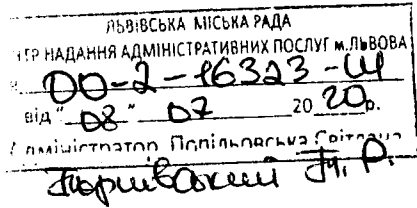 ЛЬВІВСЬКА МІСЬКА РАДА
НТР НАДАННЯ АДМІНІСТРАТИВНИХ ПОСЛУГ м.ЛЬВОВА
00-2-16323-
від "08" 07 2020р.
Адміністратор Попільовська Світлана